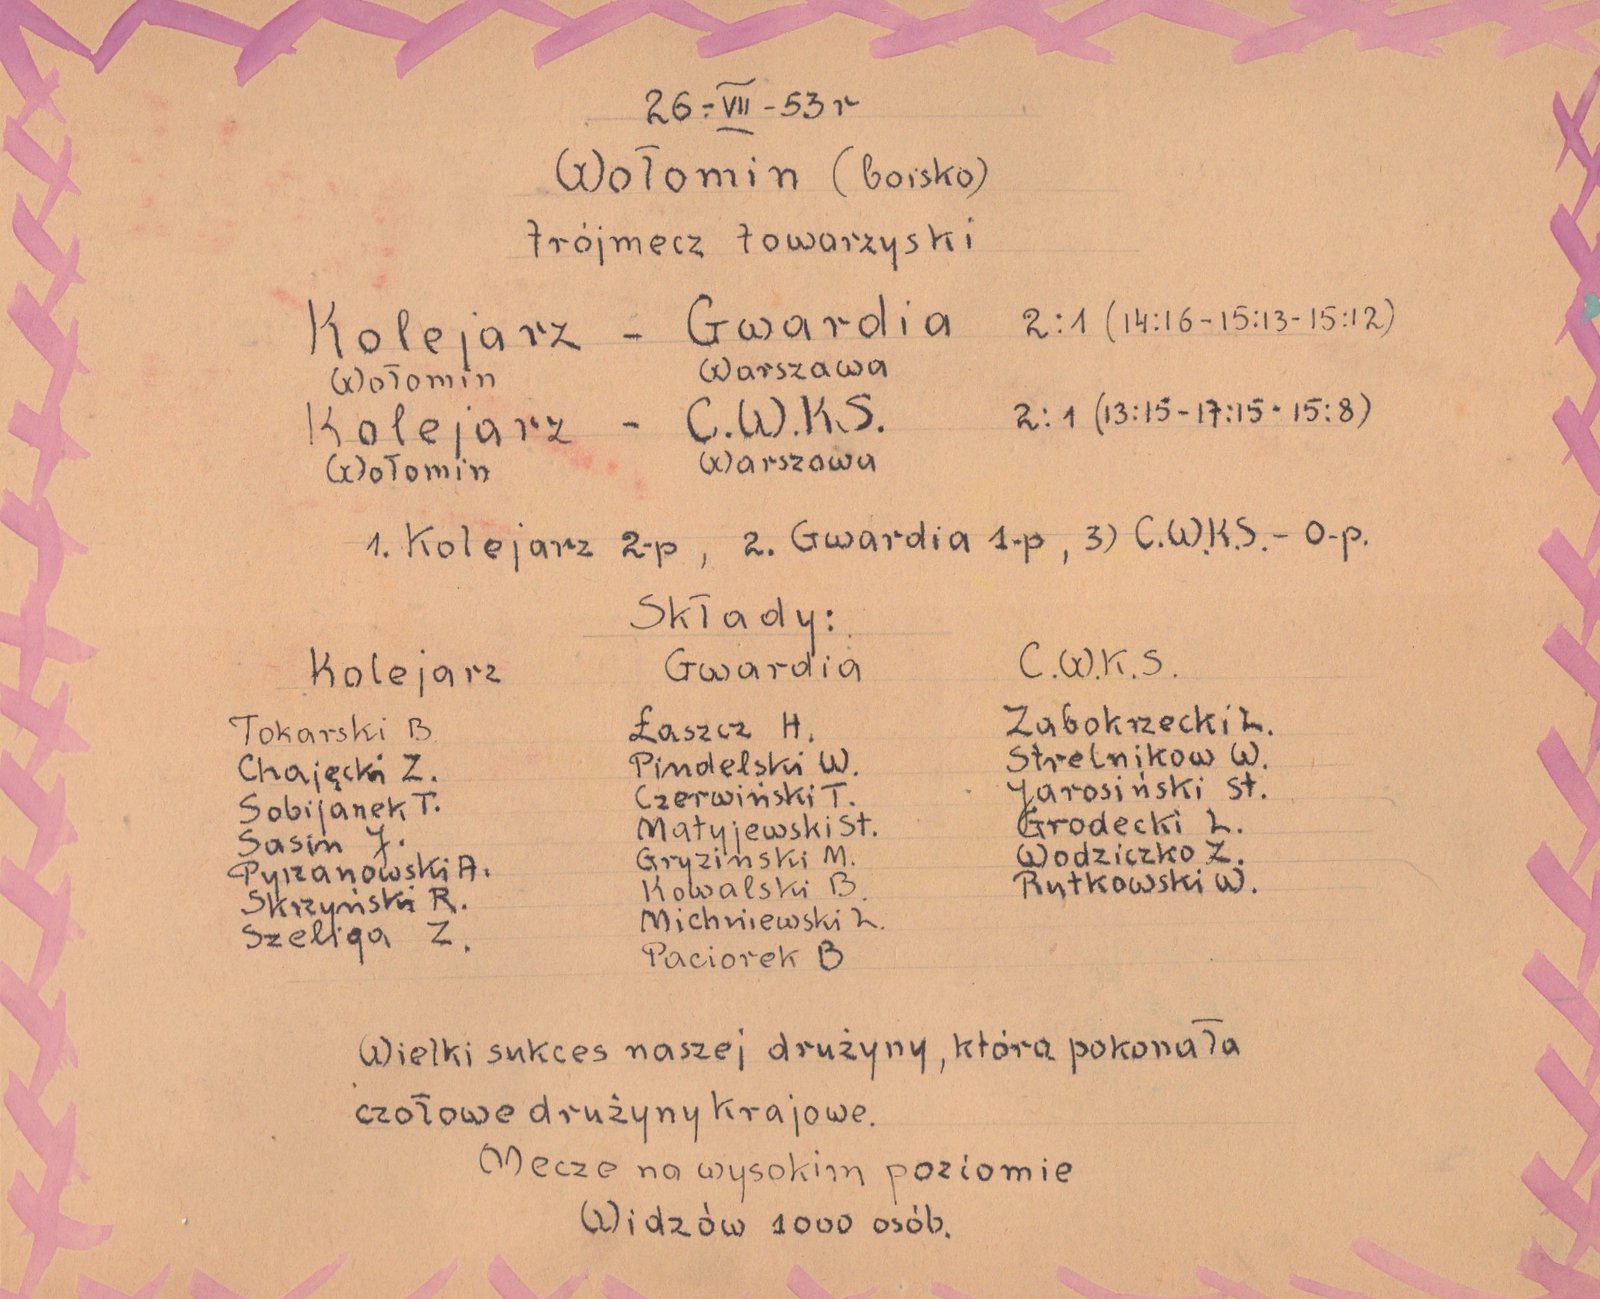 26-VII-53 r
Wołomin (boisko)
trójmecz towarzyski
Kolejarz - Gwardia 2:1 (14:16-15:13-15:12)
Wołomin Warszawa
Kolejarz - C.W.K.S. 2:1 (13:15-17:15-15:8)
Wołomin Warszawa
1. Kolejarz 2-p, 2. Gwardia 1-p, 3) C.W.K.S. - 0-p.
Składy:
Kolejarz Gwardia C.W.K.S.
Tokarski B Łaszcz H. Zabokrzecki L.
Chajęcki Z. Pindelski W. Strelnikow W.
Sobijanek T. Czerwiński T. Jarosiński St.
Sasin J. Matyjewski St. Grodecki L.
Pyrzanowski A. Gryziński M. Wodziczko Z.
Skrzyński R. Kowalski B. Rutkowski W.
Szeliga Z. Michniewski L.
Paciorek B
Wielki sukces naszej drużyny, która pokonała
czołowe drużyny krajowe.
Mecze na wysokim poziomie
Widzów 1000 osób.